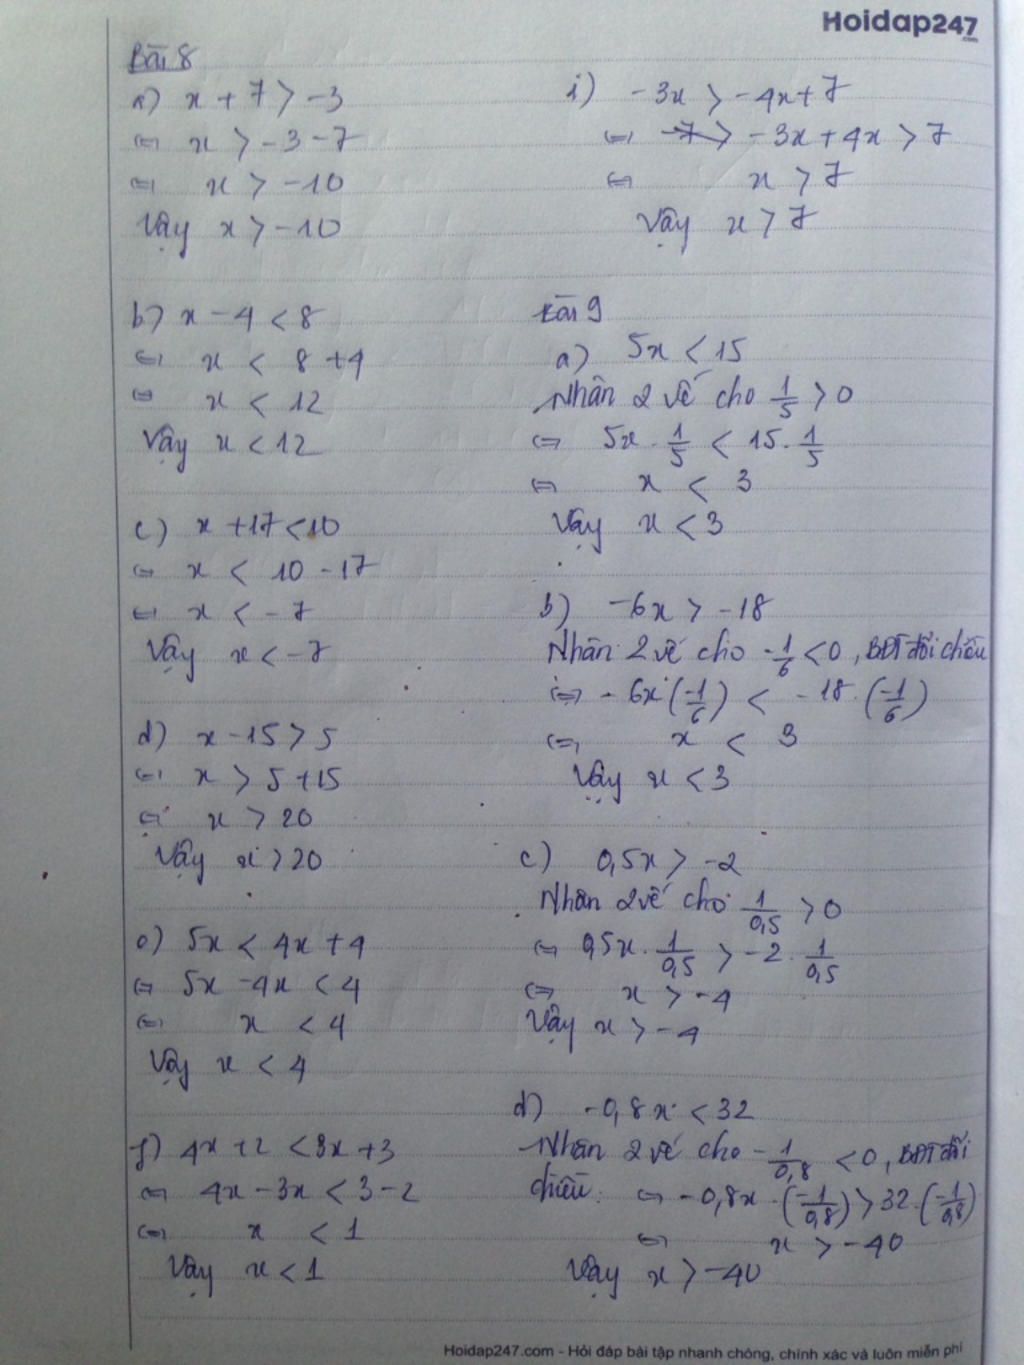 Hoidap247
.com
Bài 8
a) x + 7 > -3
⇔ x > -3 - 7
⇔ x > -10
Vậy x > -10
b) x - 4 < 8
⇔ x < 8 + 4
⇔ x < 12
Vậy x < 12
c) x + 17 < 10
⇔ x < 10 - 17
⇔ x < -7
Vậy x < -7
d) x - 15 > 5
⇔ x > 5 + 15
⇔ x > 20
Vậy x > 20
e) 5x < 4x + 4
⇔ 5x - 4x < 4
⇔ x < 4
Vậy x < 4
f) 4x + 2 < 3x + 3
⇔ 4x - 3x < 3 - 2
⇔ x < 1
Vậy x < 1
i) -3x > -4x + 7
⇔ -3x + 4x > 7
⇔ x > 7
Vậy x > 7
Bài 9
a) 5x < 15
Nhân 2 vế cho 1/5 > 0
⇔ 5x . 1/5 < 15 . 1/5
⇔ x < 3
Vậy x < 3
b) -6x > -18
Nhân 2 vế cho -1/6 < 0, BĐT đổi chiều
⇔ -6x . (-1/6) < -18 . (-1/6)
⇔ x < 3
Vậy x < 3
c) 0,5x > -2
Nhân 2 vế cho 1/0,5 > 0
⇔ 0,5x . 1/0,5 > -2 . 1/0,5
⇔ x > -4
Vậy x > -4
d) -0,8x < 32
Nhân 2 vế cho -1/0,8 < 0, BĐT đổi
chiều: ⇔ -0,8x . (-1/0,8) > 32 . (-1/0,8)
⇔ x > -40
Vậy x > -40
Hoidap247.com - Hỏi đáp bài tập nhanh chóng, chính xác và luôn miễn phí